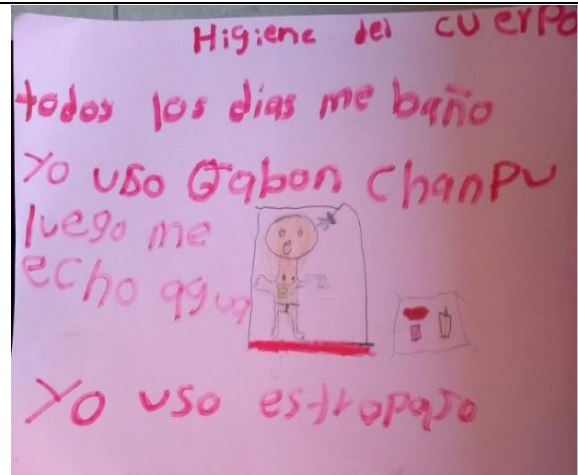 Higiene del cuerpo
todos los dias me baño
Yo uso Jabon Chanpu
luego me
echo agua
Yo uso estropajo